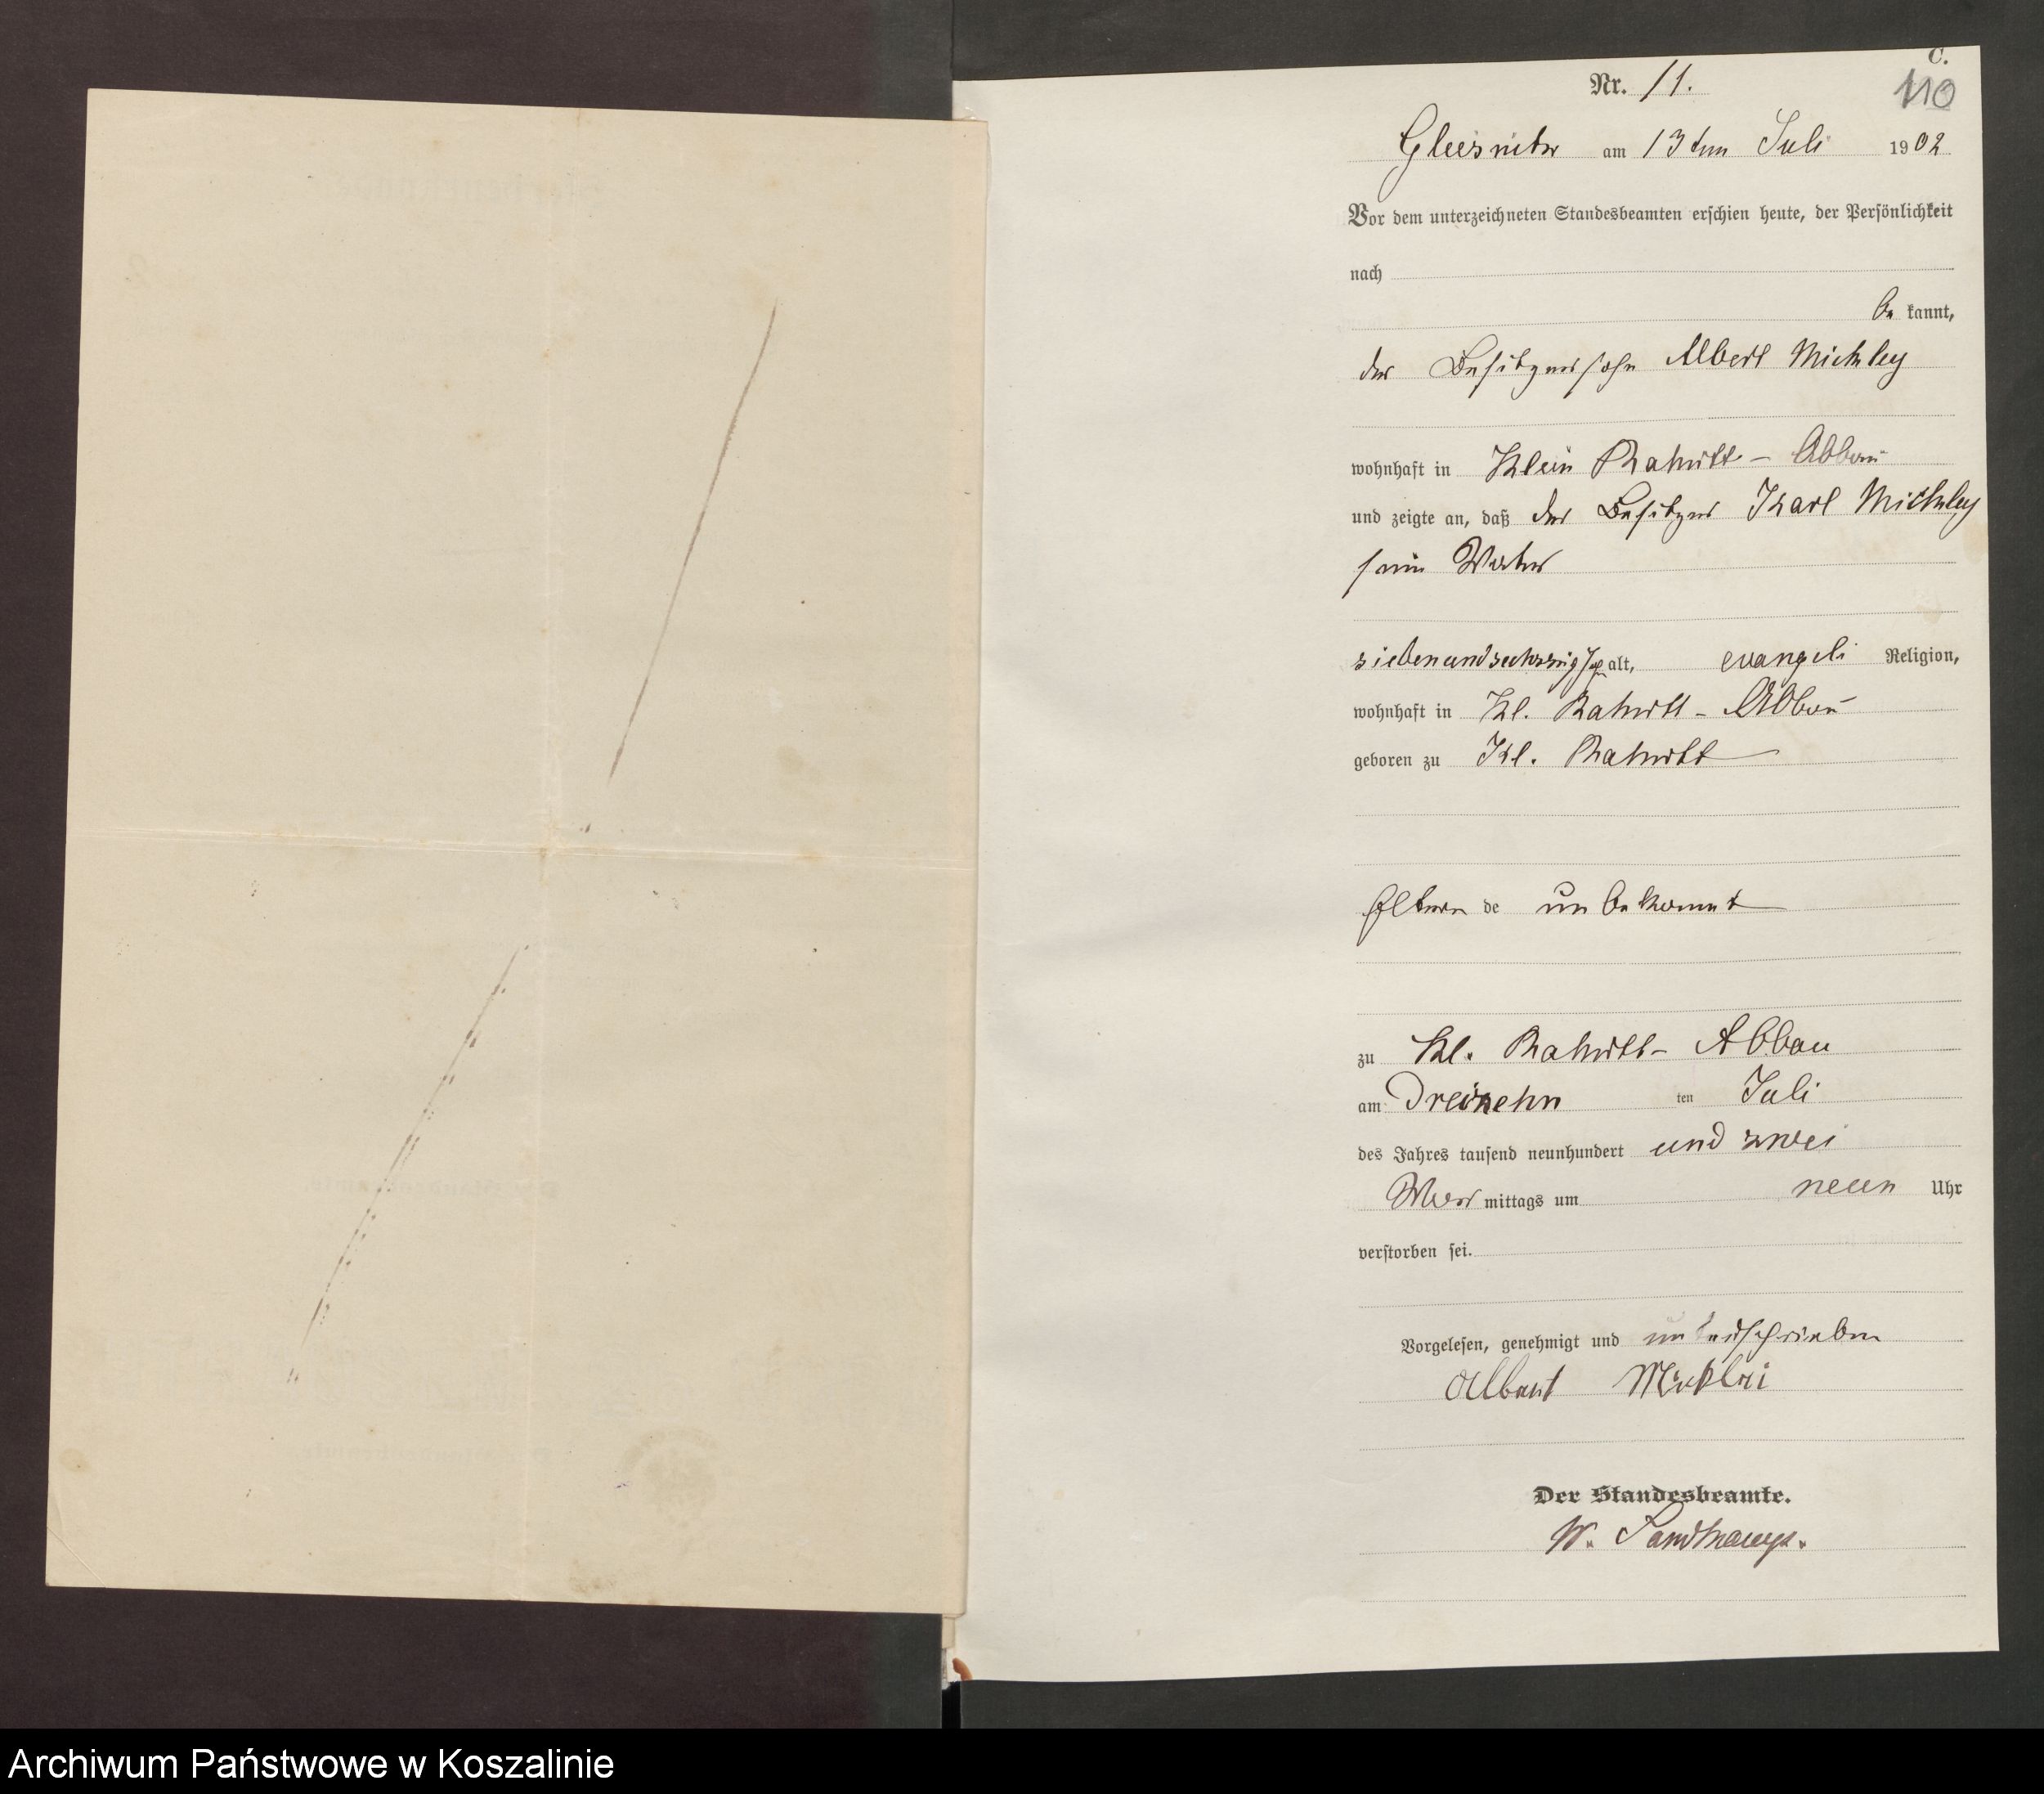 C.
110
Nr. 11.
Gleesnitz am 13ten Juli 1902
Vor dem unterzeichneten Standesbeamten erschien heute, der Persönlichkeit
nach
be kannt,
der Besitzersohn Albert Mickley
wohnhaft in Klein Rakitt - Abbau
und zeigte an, daß der Besitzer Karl Mickley
sein Vater
siebenundsechszig alt, evangeli Religion,
wohnhaft in Kl. Rakitt - Abbau
geboren zu Kl. Rakitt
Eltern de unbekannt
zu Kl. Rakitt - Abbau
am Dreizehn ten Juli
des Jahres tausend neunhundert und zwei
Vor mittags um neun Uhr
verstorben sei.
Vorgelesen, genehmigt und unterschrieben
Albert Miklei
Der Standesbeamte.
W. Sandkamp.
Archiwum Państwowe w Koszalinie